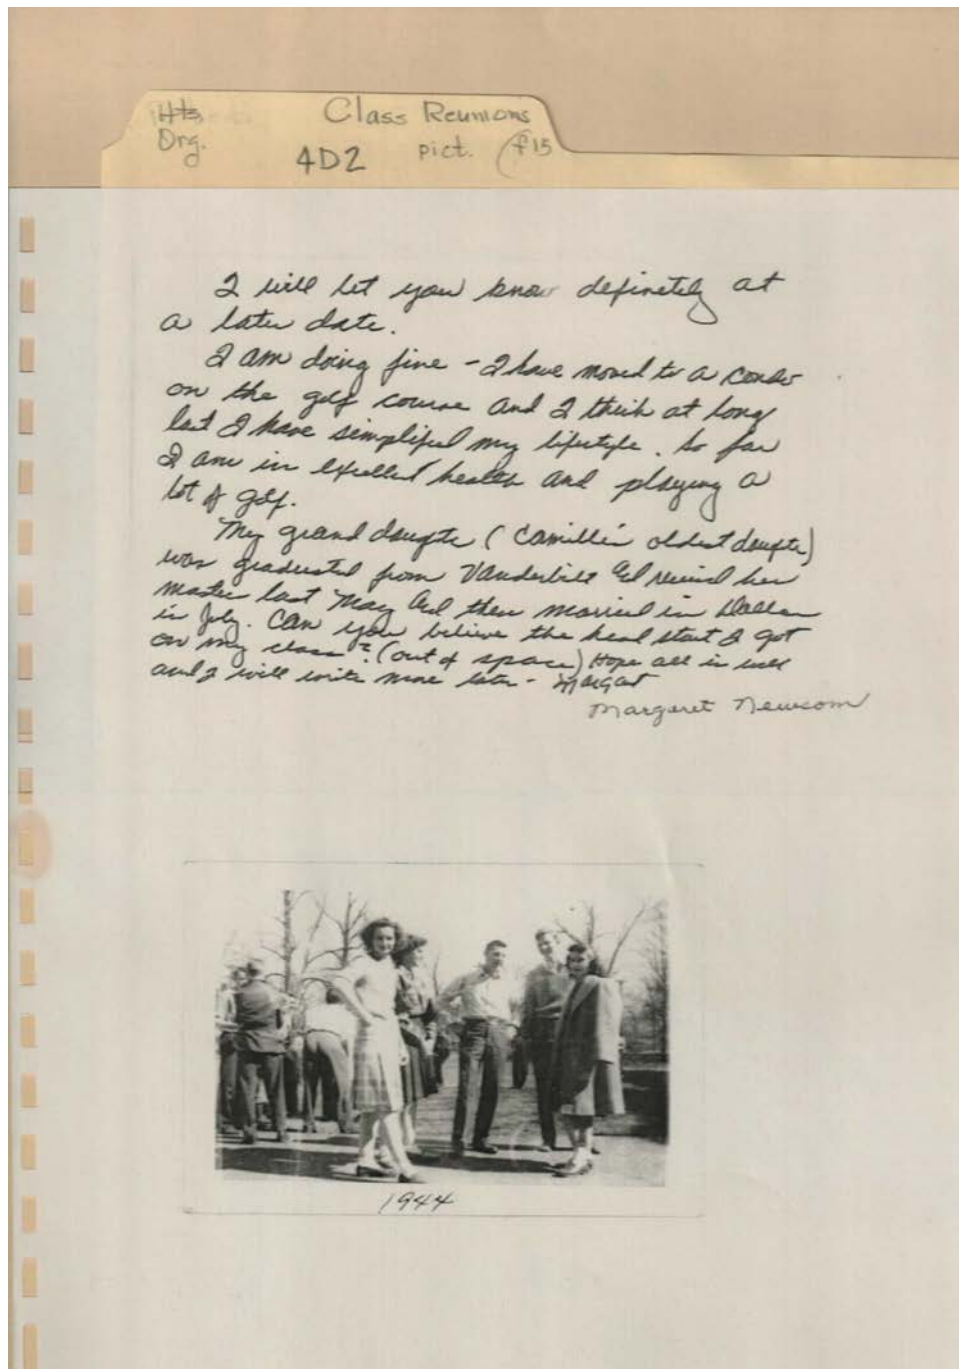 Hts, Class Reunions
Org. 4D2 pict. (f15
I will let you know definitely at
a later date.
I am doing fine - I have moved to a condo
on the golf course and I think at long
last I have simplified my lifestyle. So far
I am in excellent health and playing a
lot of golf.
My grand daughter (Camille's oldest daughter)
was graduated from Vanderbilt and received her
master last May and then married in Dallas
in July. Can you believe the head start I got
on my class? (out of space) Hope all is well
and I will write more later - Margaret
Margaret Newcom
1944